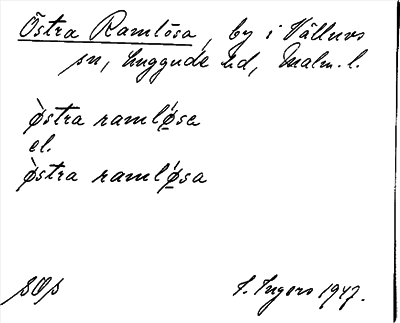 Östra Ramlösa, by i Välluvs
sn, Luggude hd, Malm. l.
ø̀stra ramlǿse
el.
ø̀stra ramlǿsa
sOs
I. Ingers 1947.